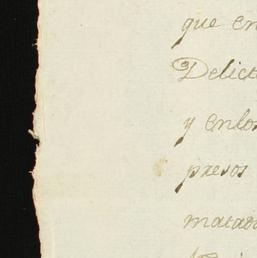 que en
Delict
y enlos
presos
matad